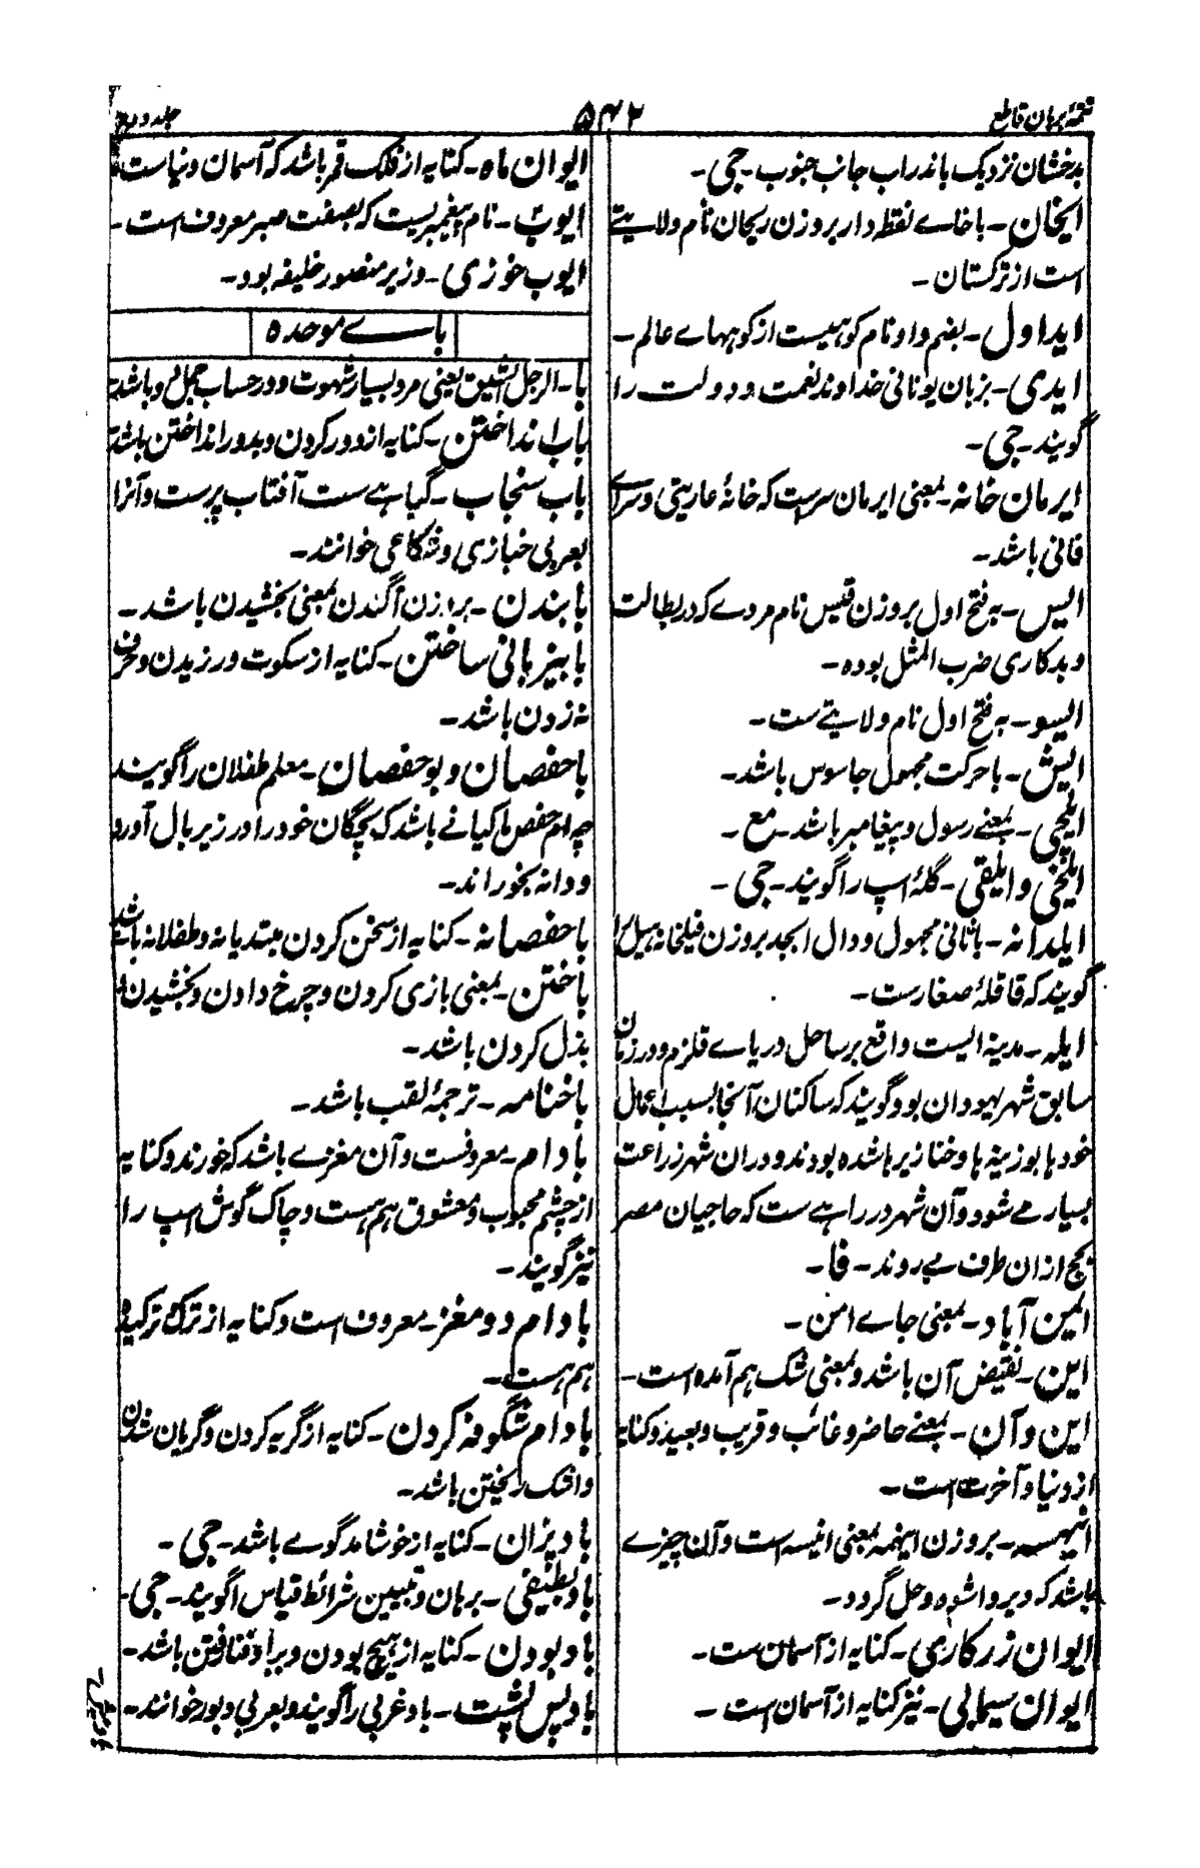 تتمۂ برہان قاطع
۵۴۲
جلد دوم
بدخشان نزدیک باندراب جانب جنوب - جی -
ایخان - باخاے نقطه دار بروزن ریحان نام ولایتے
است از ترکستان -
ایداول - بضم واو نام کوہیست از کوہہاے عالم -
ایدی - بزبان یونانی خداوند نعمت و دولت را
گویند - جی -
ایرمان خانہ - بمعنی ایرمان سرست کہ خانۂ عاریتی و سراے
فانی باشد -
ایس - بہ فتح اول بروزن قیس نام مردے کہ در بطالت
و بدکاری ضرب المثل بودہ -
ایسو - بہ فتح اول نام ولایتے ست -
ایش - باحرکت مجہول جاسوس باشد -
ایلچی - بمعنے رسول و پیغامبر باشد - مع -
ایلخی و ایلقی - گلۂ اسپ را گویند - جی -
ایلدانہ - باثانی مجہول و دال ابجد بروزن فیلخانہ ہیل را
گویند کہ قاقلۂ صغارست -
ایلہ - مدینہ ایست واقع بر ساحل دریاے قلزم و در زمان
سابق شہر یہودان بود و گویند کہ ساکنان آنجا بسبب اعمال
خود ہا بوزینہ ہا و خنازیر ہا شدہ بودند و در ان شہر زراعت
بسیار مے شود و آن شہر در راہے ست کہ حاجیان مصر
بحج ازان طرف مے روند - فا -
ایمن آباد - بمعنی جاے امن -
این - نقیض آن باشد و بمعنی شک ہم آمدہ است -
این و آن - بمعنے حاضر و غائب و قریب و بعید و کنایہ
از دنیا و آخرت است -
انیہہ - بروزن ایہمہ بمعنی انیسہ است و آن چیزے
باشد کہ دیر وا شود و حل گردد -
ایوان زرکاری - کنایہ از آسمان ست -
ایوان سیمابی - نیز کنایہ از آسمان است -
ایوان ماہ - کنایہ از فلک قمر باشد کہ آسمان دنیاست
ایوب - نام پیغمبریست کہ بصفت صبر معروف است -
ایوب خوزی - وزیر منصور خلیفہ بود -
باے موحدہ
با - الرجل الشبق یعنی مرد بسیار شہوت و در حساب جمل دو باشد
باب انداختن - کنایہ از دور کردن و بدور انداختن باشد
باب سنجاب - گیاہے ست آفتاب پرست و آنرا
بعربی خبازی و نکاعی خوانند -
بابندن - بروزن آگندن بمعنی بخشیدن باشد -
بابیزبانی ساختن - کنایہ از سکوت ورزیدن و حرف
نہ زدن باشد -
باحفصان و بوحفصان - معلم طفلان را گویند
چہ ام حفص ماکیانے باشد کہ بچگان خود را در زیر بال آورد
و دانہ بخوراند -
باحفصانہ - کنایہ از سخن کردن مبتدیانہ و طفلانہ باشد
باختن - بمعنی بازی کردن و چرخ دادن و بخشیدن و
بذل کردن باشد -
باخنامہ - ترجمۂ لقب باشد -
بادام - معروفست و آن مغزے باشد کہ خورند و کنایہ
از چشم محبوب و معشوق ہم ہست و چاک گوش اسپ را
نیز گویند -
بادام دو مغز - معروف است و کنایہ از ترک ترکیدہ
ہم ہست -
بادام شگوفہ کردن - کنایہ از گریہ کردن و گریان شدن
و اشک ریختن باشد -
بادیزان - کنایہ از خوشامد گوے باشد - جی -
بادبطنیقی - برہان و تبیین شرائط قیاس را گویند - جی -
بادبودن - کنایہ از ہیچ بودن و برباد فنا رفتن باشد -
بادپس پشت - باد غربی را گویند و بعربی دبور خوانند -